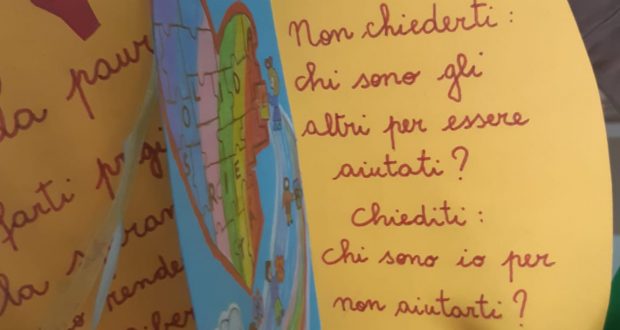 la paur
farti
la
rende
Non chiederti:
chi sono gli
altri per essere
aiutati?
Chiediti:
chi sono io per
non aiutarti?